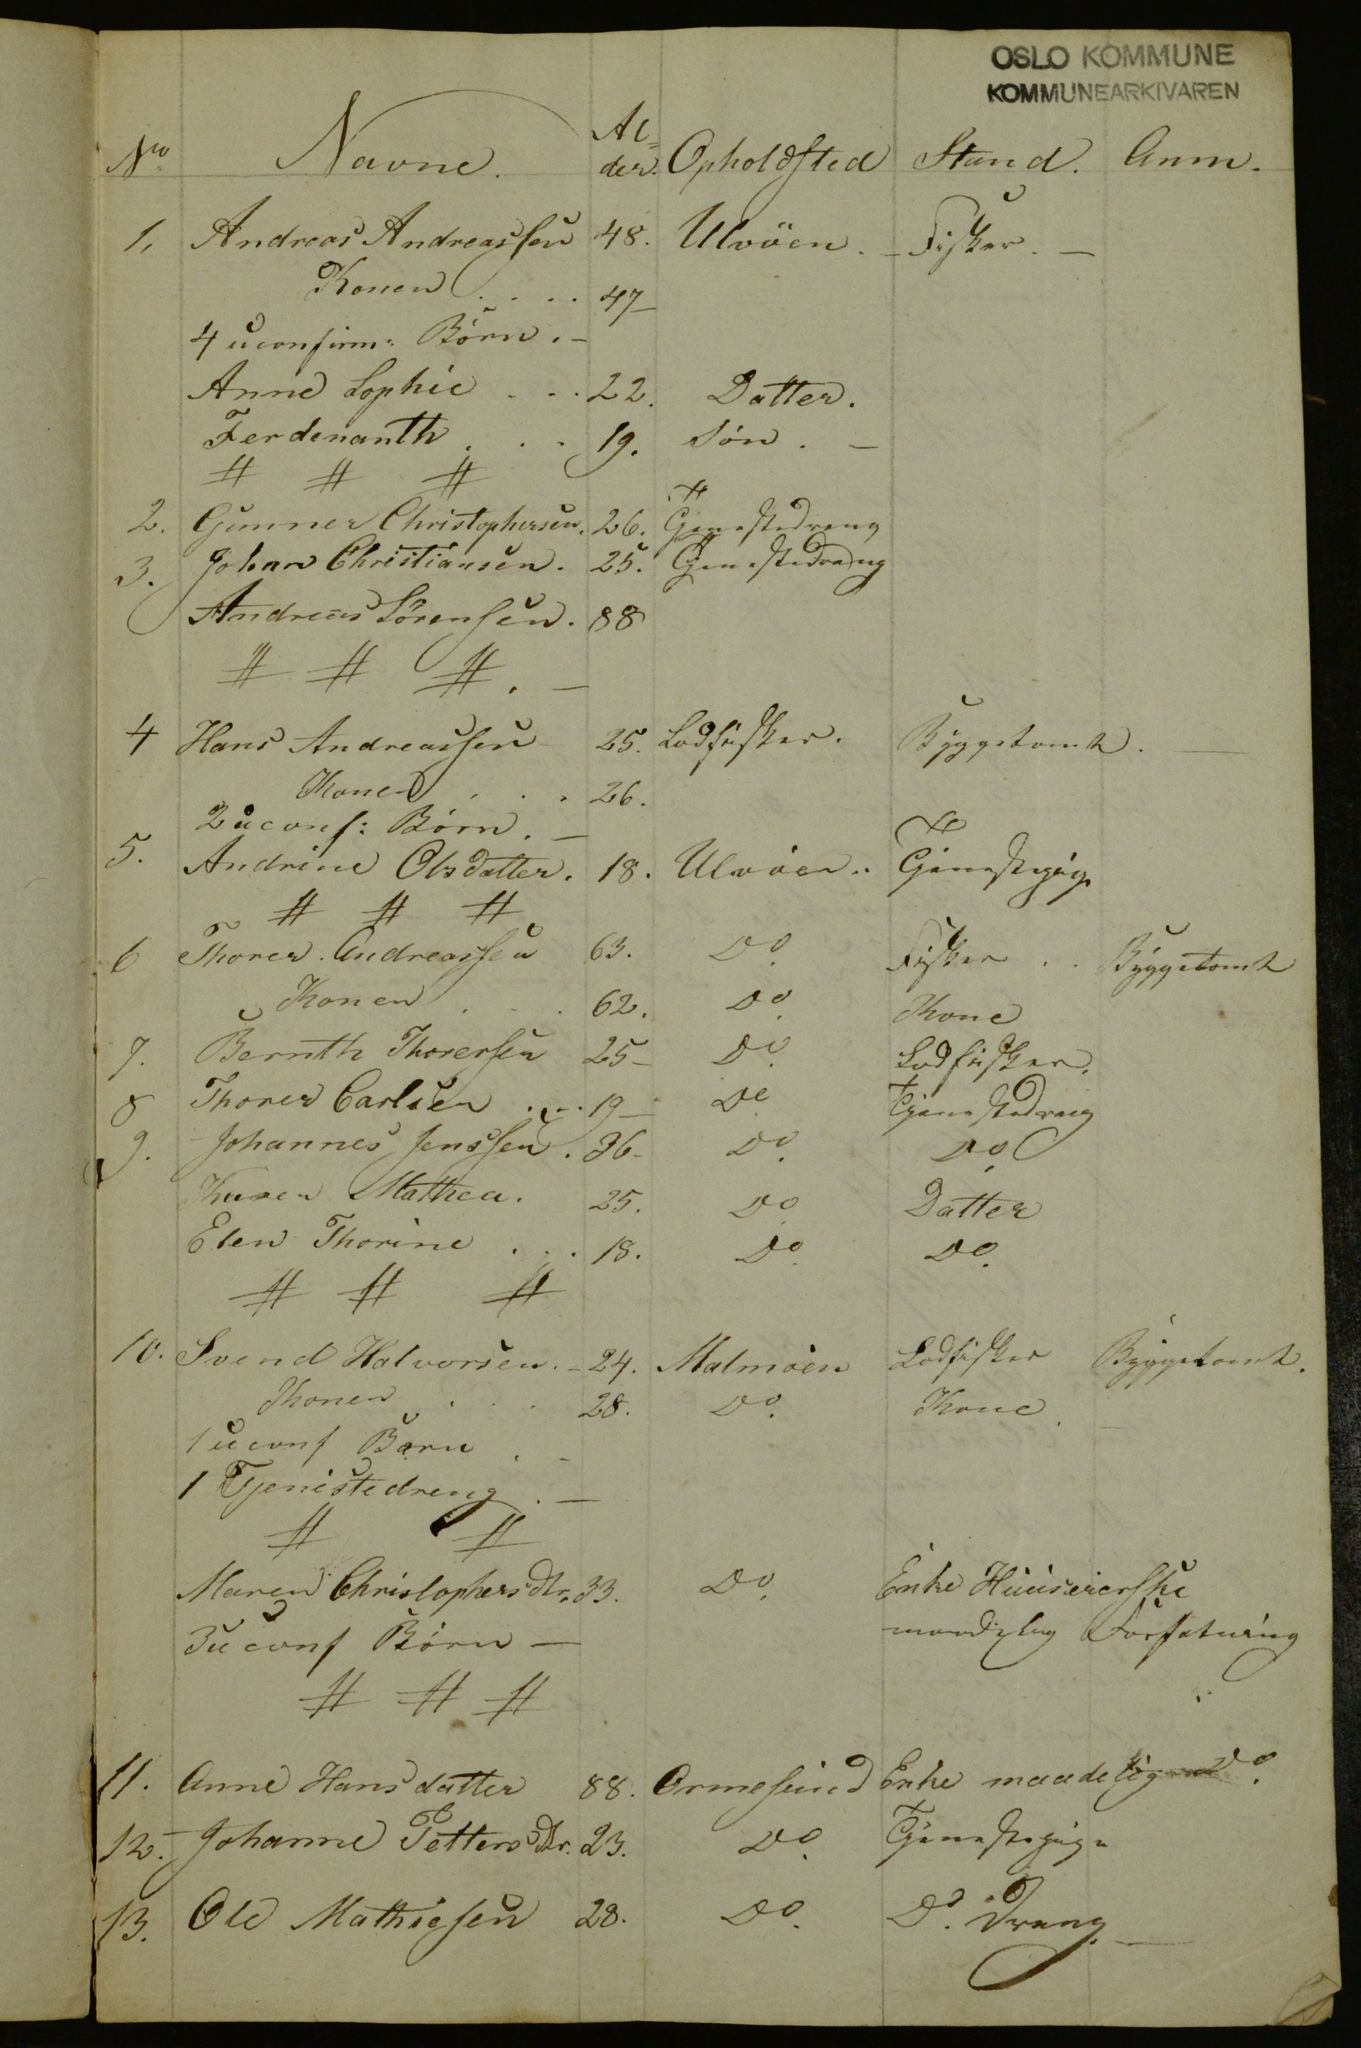 OSLO KOMMUNE
KOMMUNEARKIVAREN
No. Navne. Alder. Opholdsted Stand. Anm.
1. Andreas Andreassen 48. Ulvöen. Fisker.
Konen .... 47
4 uconfirm: Börn.
Anne Sophie ... 22. Datter.
Ferdenanth ... 19. Sön.
2. Gunner Christophersen. 26. Tjenestedreng
3. Johan Christiansen. 25. Tjenestedreng
Andreas Sörensen. 88
4 Hans Andreassen 25. Lodsfisker. Byggetomt.
Konen ... 26.
2 uconf: Börn.
5. Andrine Olsdatter. 18. Ulvöen. Tjenestepige
6 Thorer Andreassen 63. Do. Fisker .. Byggetomt
Konen ... 62. Do. Kone
7. Bernth Thorersen 25 Do. Lodsfisker.
8 Thorer Carlsen ... 19 Do Tjenestedreng
9. Johannes Jenssen. 36 Do. Do.
Mathea. 25. Do Datter
Elen Thorine ... 18. Do. Do.
10. Svend Halvorsen. 24. Malmöen Lodsfisker Byggetomt.
Konen ... 28. Do. Kone
1 uconf Barn
1 Tjenistedreng.
Maren Christophersdtr. 33. Do. Enke Huuseierske
3 uconf Börn maadelig Forfatning
11. Anne Hansdatter 88. Ormesund Enke maadelig Do.
12. Johanne Pettersdtr. 23. Do. Tjenestepige
13. Ole Mathiesen 28. Do. Do. Dreng.